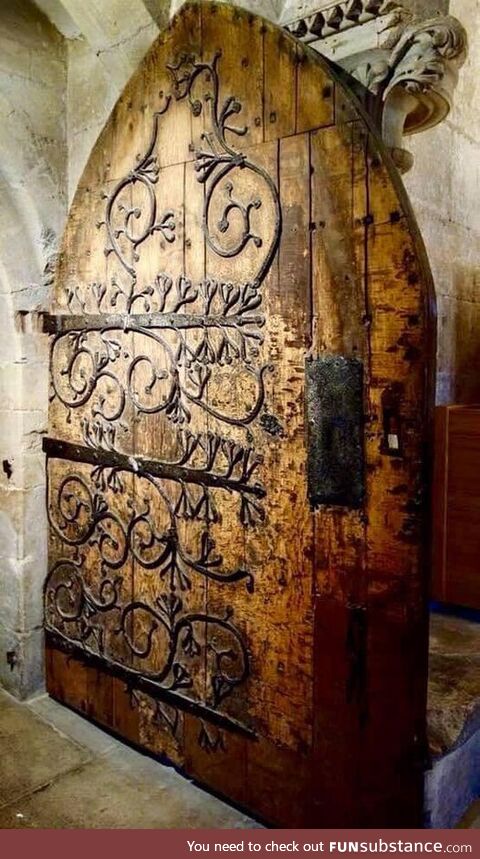 You need to check out FUNsubstance.com